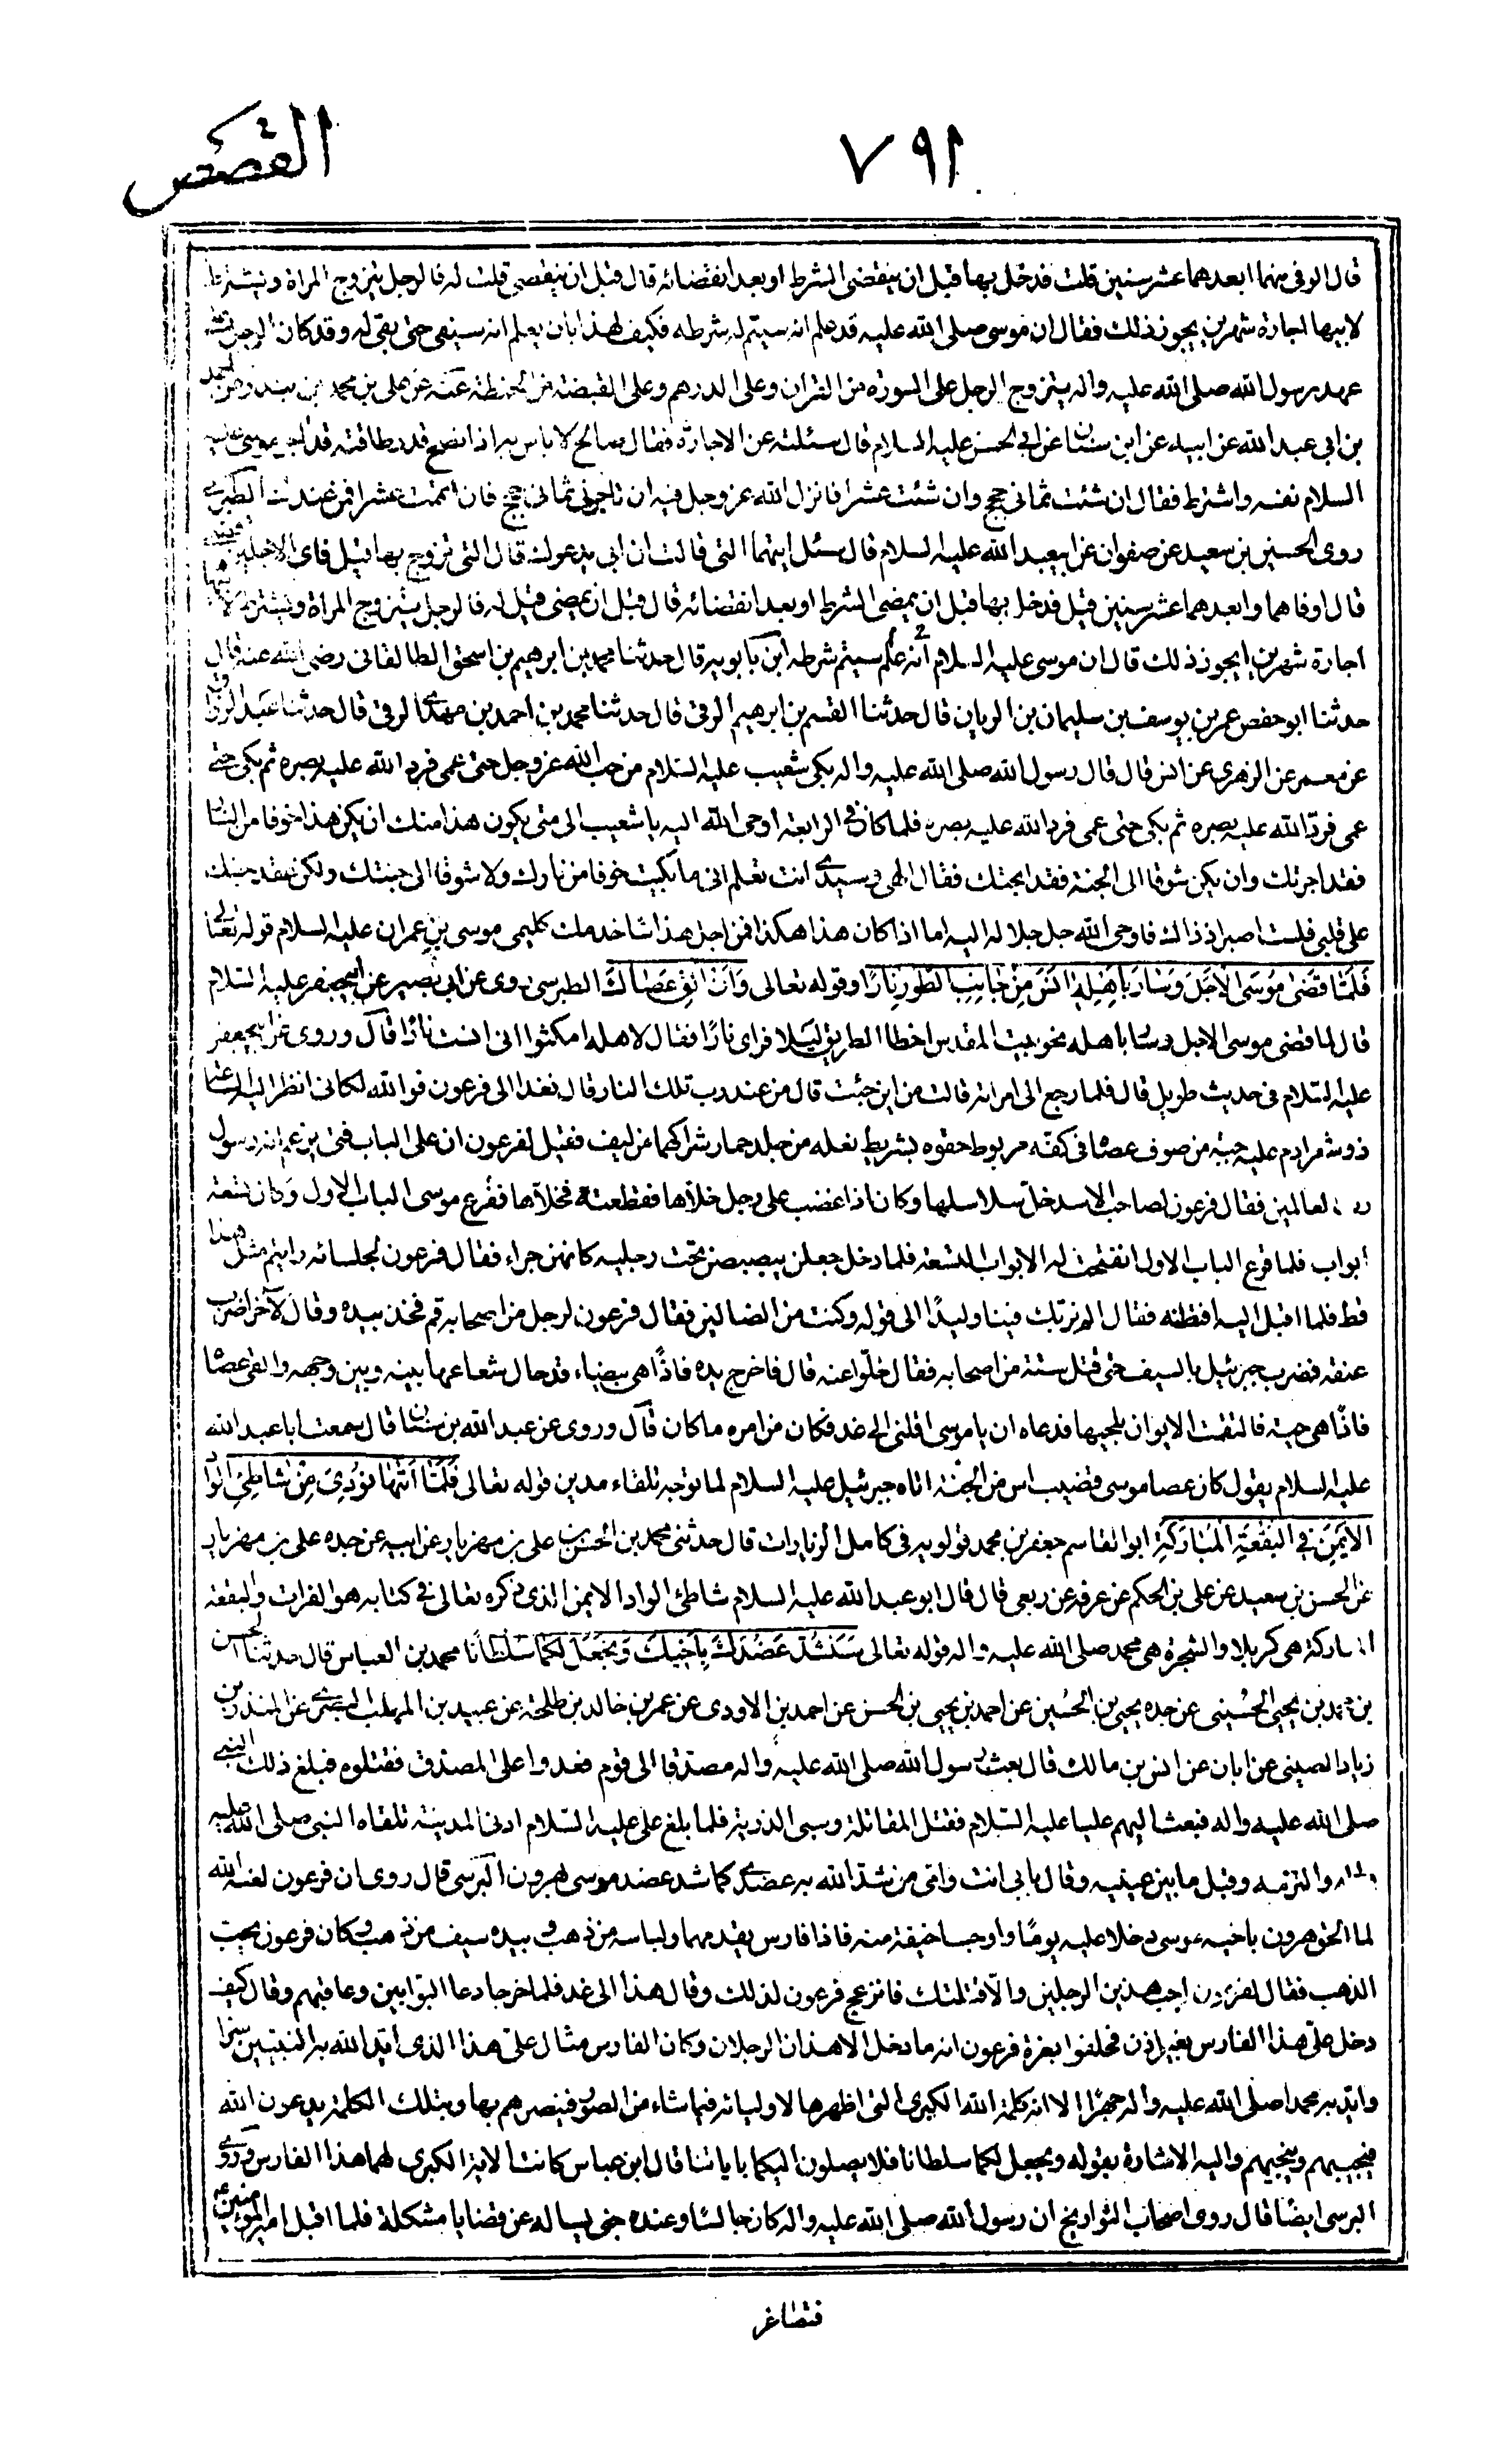 القصص
٧٩١
قال الوفى منهما ابعدهما عشر سنين قلت فدخل بها قبل ان ينقضى الشرط او بعد انقضائه قال قبل ان ينقضى قلت له فالرجل يتزوج المراة ويشترط
لابيها اجارة شهرين يجوز ذلك فقال ان موسى صلى الله عليه قد علم انه سيتم له شرطه فكيف لهذا بان يعلم انه سيبقى حتى يفى له وقد كان الرجل
عهد رسول الله صلى الله عليه واله يتزوج الرجل على السورة من القران وعلى الدرهم وعلى القبضة من الحنطة عنه عن على بن محمد بن بندار عن احمد
بن ابى عبد الله عن ابيه عن ابن سنان عن ابى الحسن عليه السلام قال سئلته عن الاجارة فقال صالح لا باس به اذا نصح قدر طاقته قد اجر موسى عليه
السلام نفسه واشترط فقال ان شئت ثمانى حجج وان شئت عشرا فانزل الله عز وجل فيه ان تاجرنى ثمانى حجج فان اتممت عشرا فمن عندك الطبرسى
روى الحسين بن سعيد عن صفوان عن ابيعبد الله عليه السلام قال سئل ايتهما التى قالت ان ابى يدعوك قال التى تزوج بها قيل فاى الاجلين قضى
قال اوفاهما وابعدهما عشر سنين قيل فدخل بها قبل ان يمضى الشرط او بعد انقضائه قال قبل ان يمضى قيل له فالرجل يتزوج المراة ويشترط لابيها
اجارة شهرين ايجوز ذلك قال ان موسى عليه السلام انه علم سيتم شرطه ابن بابويه قال حدثنا محمد بن ابرهيم بن اسحق الطالقانى رضى الله عنه قال
حدثنا ابو حفص عمر بن يوسف بن سليمان بن الريان قال حدثنا القسم بن ابرهيم الرقى قال حدثنا محمد بن احمد بن مهدى الرقى قال حدثنا عبد الرزاق
عن معمر عن الزهرى عن انس قال قال رسول الله صلى الله عليه واله بكى شعيب عليه السلام من حب الله عز وجل حتى عمى فرد الله عليه بصره ثم بكى حتى
عمى فرد الله عليه بصره ثم بكى حتى عمى فرد الله عليه بصره فلما كان فى الرابعة اوحى الله اليه يا شعيب الى متى يكون هذا منك ان يكن هذا خوفا من النار
فقد اجرتك وان يكن شوقا الى الجنة فقد ابحتك فقال الهى وسيدى انت تعلم انى ما بكيت خوفا من نارك ولا شوقا الى جنتك ولكن عقد حبك
على قلبى فلست اصبر اذ ذالك فاوحى الله جل جلاله اليه اما اذا كان هذا هكذا فمن اجل هذا ساخدمك كليمى موسى بن عمران عليه السلام قوله تعالى
فَلَمَّا قَضى مُوسَى الاَجَلَ وَسارَ بِاَهْلِهِ انَسَ مِنْ جانِبِ الطُّورِ نارًا وقوله تعالى وَاَنْ اَلْقِ عَصاكَ الطبرسى روى عن ابى بصير عن ابيجعفر عليه السلام
قال لما قضى موسى الاجل وسار باهله نحو بيت المقدس اخطا الطريق ليلا فراى نارًا فقال لاهله امكثوا انى انست نارًا قال وروى عن ابيجعفر
عليه السلام فى حديث طويل قال فلما رجع الى امراته قالت من اين جئت قال من عند رب تلك النار قال فغدا الى فرعون فوالله لكانى انظر اليه
عليه جبة من صوف عصا فى كفه مربوط حقوه بشريط نعله من جلد حمار شراكهما من ليف فقيل لفرعون ان على الباب فتى يزعم انه رسول
رب العالمين فقال فرعون لصاحب الاسد خل سلاسلها وكان اذا غضب على رجل خلاها فقطعته فخلاها فقرع موسى الباب الاول وكان تسعة
ابواب فلما قرع الباب الاول انفتحت له الابواب التسعة فلما دخل جعلن يبصبصن تحت رجليه كانهن جراء فقال فرعون لجلسائه رايتم مثل هذا
قط فلما اقبل اليه فقال الم نربك فينا وليدًا الى قوله وكنت من الضالين فقال فرعون لرجل من اصحابه قم فخذ بيده وقال لآخر اضرب
عنقه فضرب جبرئيل بالسيف حتى قتل ستة من اصحابه فقال خلّوا عنه قال فاخرج يده فاذًا هى بيضاء قد حال شعاعها بينه وبين وجهه والقى عصا
فاذًا هى حية فالتقمت الايوان بلحييها فدعاه ان يا موسى اقلنى الى غد فكان من امره ما كان قال وروى عن عبد الله بن سنان قال سمعت ابا عبد الله
عليه السلام يقول كان عصا موسى قضيب اس من الجنّة اتاه جبرئيل عليه السلام لما توجه تلقاء مدين قوله تعالى فَلَمّا اَتيها نُودِىَ مِنْ شاطِئِ الْوادِ
الاَيْمَنِ فِى الْبُقْعَةِ الْمُبارَكَةِ ابو القاسم جعفر بن محمد قولويه فى كامل الزيارات قال حدثنى محمد بن الحسن بن على بن مهزيار عن ابيه عن جده على بن مهزيار
عن الحسن بن سعيد عن على بن الحكم عن عرفه عن ربعى قال قال ابو عبد الله عليه السلام شاطئ الواد الايمن الذى ذكره تعالى فى كتابه هو الفرات والبقعة
المباركة هى كربلا والشجرة هى محمد صلى الله عليه واله قوله تعالى سَنَشُدُّ عَضُدَكَ بِاَخيكَ وَنَجْعَلُ لَكُما سُلْطانًا محمد بن العباس قال حدثنا الحسن
بن محمد بن يحيى الحسينى عن جده يحيى بن الحسين عن احمد بن يحيى بن الحسن عن احمد بن الاودى عن عمر بن خالد بن طلحة عن عبيد بن المهلب البصرى عن المنذر بن
زياد الصينى عن ابان عن انس بن مالك قال بعث رسول الله صلى الله عليه واله مصدقا الى قوم فعدوا على المصدق فقتلوه فبلغ ذلك النبى
صلى الله عليه واله فبعث اليهم عليا عليه السلام فقتل المقاتلة وسبى الذرية فلما بلغ على عليه السلام ادنى المدينة تلقاه النبى صلى الله عليه
واله والتزمه وقبل ما بين عينيه وقال بابى انت وامى من شد الله به عضدى كما شد عضد موسى بهرون البرسى قال روى ان فرعون لعنه الله
لما الحق هرون باخيه موسى دخلا عليه يومًا واوجسا خيفة منه فاذا فارس يقدمهما ولباسه من ذهب وبيده سيف من ذهب وكان فرعون يحب
الذهب فقال لفرعون اجب هذين الرجلين والّا قتلتك فانزعج فرعون لذلك وقال هذا الى غد فلما خرجا دعا البوابين وعاقبهم وقال كيف
دخل علىّ هذا الفارس بغير اذن فحلفوا بعزة فرعون انه ما دخل الا هذان الرجلان وكان الفارس مثال علىّ هذا الذى ايد الله به النبيين سرا
وايد به محمدا صلى الله عليه واله جهرًا الا انه كلمة الله الكبرى التى اظهرها لاوليائه فيما شاء من الصور فينصرهم بها وبتلك الكلمة يدعون الله
فيجيبهم وينجيهم واليه الاشارة بقوله ويجعل لكما سلطانا فلا يصلون اليكما باياتنا قال ابن عباس كانت الاية الكبرى لهما هذا الفارس وروى
البرسى ايضًا قال روى اصحاب التواريخ ان رسول الله صلى الله عليه واله كان جالسًا وعنده جنى يساله عن قضايا مشكلة فلما اقبل امير المؤمنين
فتصاغر